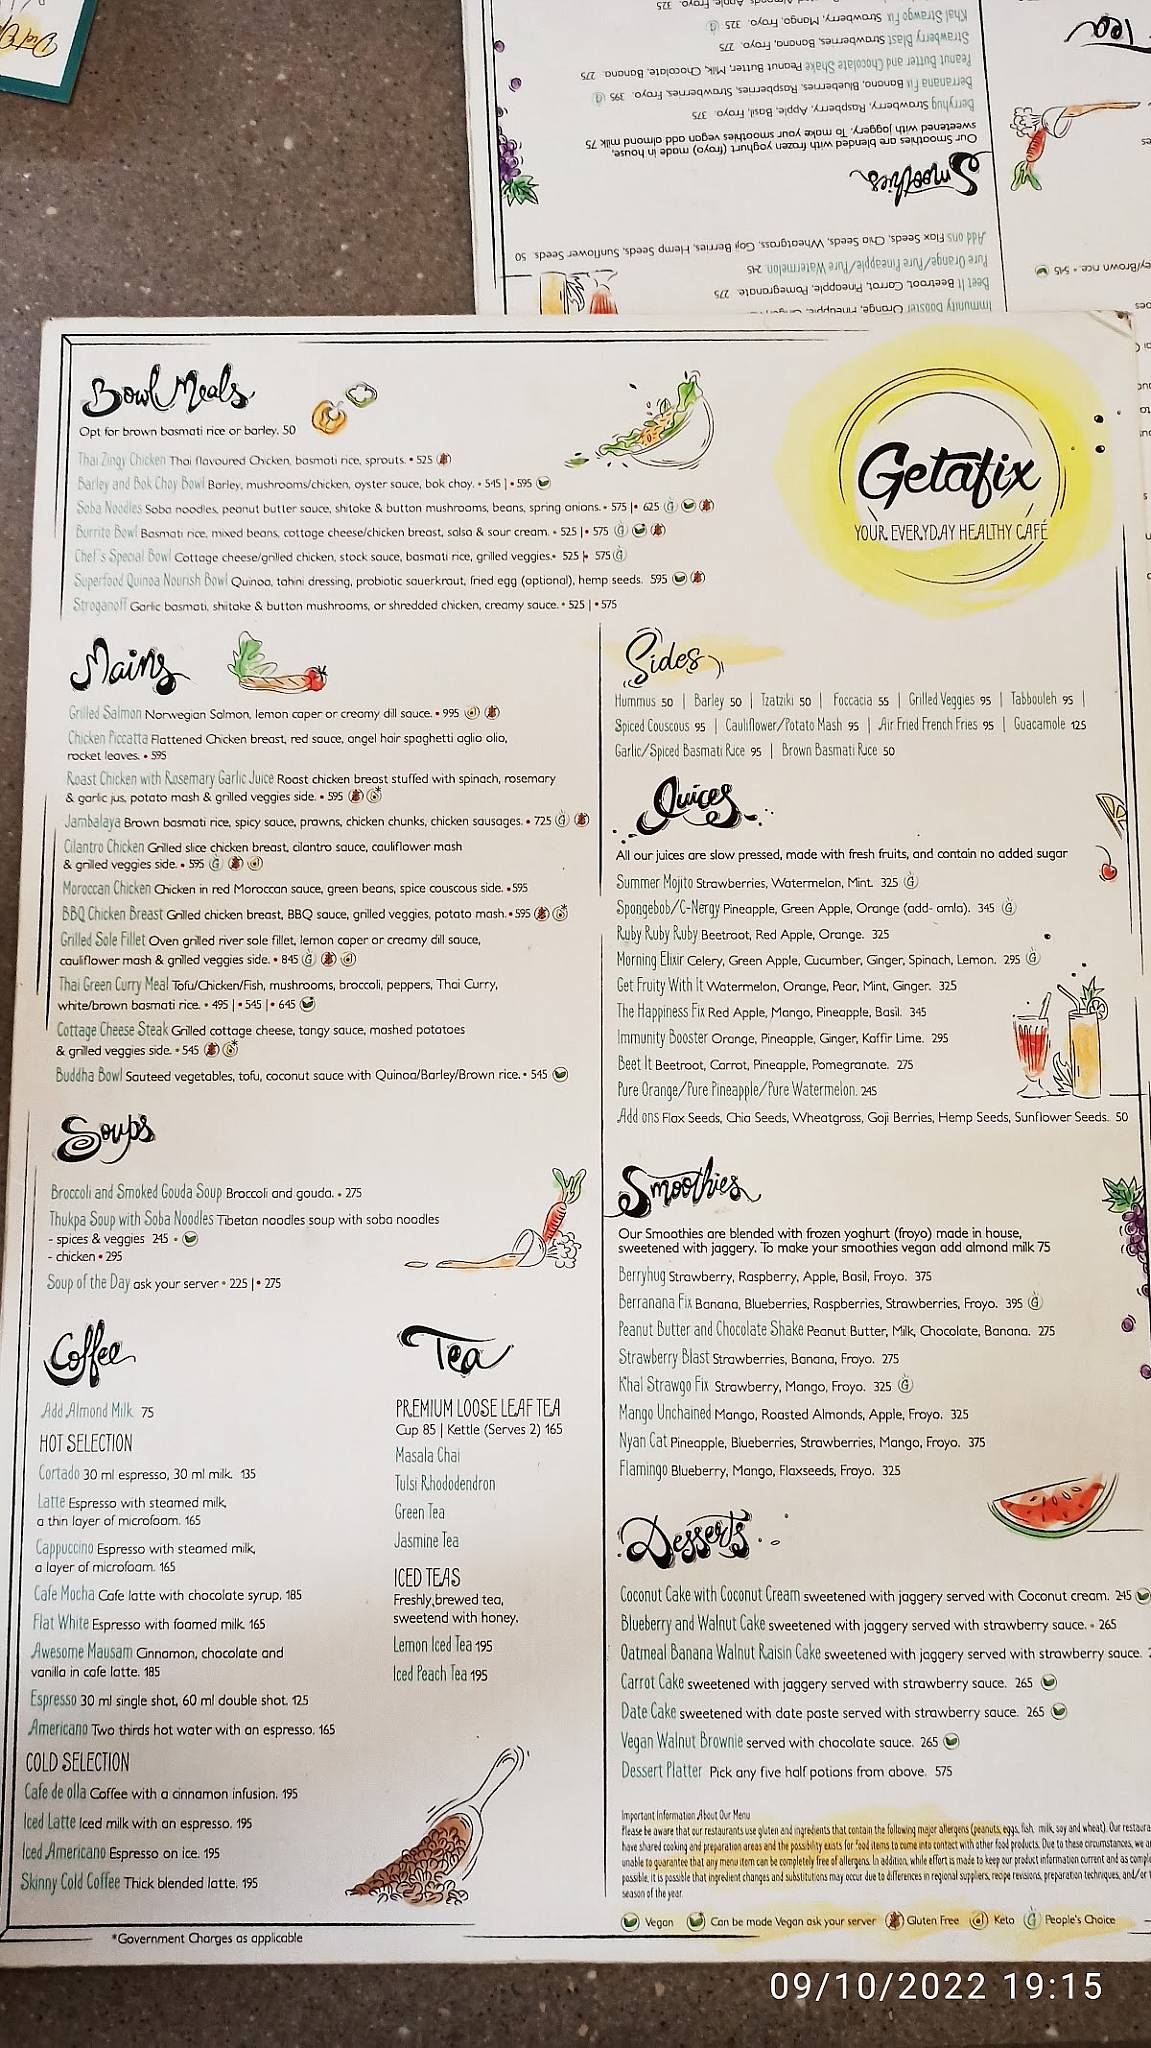 Khal Strawgo Fix Strawberry, Mango, Froyo. 325
Strawberry Blast Strawberries, Banana, Froyo. 275
Peanut Butter and Chocolate Shake Peanut Butter, Milk, Chocolate, Banana. 275
Berranana Fix Banana, Blueberries, Raspberries, Strawberries, Froyo. 395
Berryhug Strawberry, Raspberry, Apple, Basil, Froyo. 375
sweetened with jaggery. To make your smoothies vegan add almond milk 75
Our Smoothies are blended with frozen yoghurt (froyo) made in house,
Smoothies
Tea
Add ons Flax Seeds, Chia Seeds, Wheatgrass, Goji Berries, Hemp Seeds, Sunflower Seeds. 50
Pure Orange/Pure Pineapple/Pure Watermelon. 245
Beet It Beetroot, Carrot, Pineapple, Pomegranate. 275
Bowl Meals
Opt for brown basmati rice or barley. 50
Thai Zingy Chicken Thai flavoured Chicken, basmati rice, sprouts. • 525
Barley and Bok Choy Bowl Barley, mushrooms/chicken, oyster sauce, bok choy. • 545 | • 595
Soba Noodles Soba noodles, peanut butter sauce, shitake & button mushrooms, beans, spring onions. • 575 | • 625
Burrito Bowl Basmati rice, mixed beans, cottage cheese/chicken breast, salsa & sour cream. • 525 | • 575
Chef's Special Bowl Cottage cheese/grilled chicken, stock sauce, basmati rice, grilled veggies. • 525 | • 575
Superfood Quinoa Nourish Bowl Quinoa, tahini dressing, probiotic sauerkraut, fried egg (optional), hemp seeds. 595
Stroganoff Garlic basmati, shiitake & button mushrooms, or shredded chicken, creamy sauce. • 525 | • 575
Getafix
YOUR EVERYDAY HEALTHY CAFÉ
Mains
Grilled Salmon Norwegian Salmon, lemon caper or creamy dill sauce. • 995
Chicken Piccatta Flattened Chicken breast, red sauce, angel hair spaghetti aglio olio,
rocket leaves. • 595
Roast Chicken with Rosemary Garlic Juice Roast chicken breast stuffed with spinach, rosemary
& garlic jus, potato mash & grilled veggies side. • 595
Jambalaya Brown basmati rice, spicy sauce, prawns, chicken chunks, chicken sausages. • 725
Cilantro Chicken Grilled slice chicken breast, cilantro sauce, cauliflower mash
& grilled veggies side. • 595
Moroccan Chicken Chicken in red Moroccan sauce, green beans, spice couscous side. • 595
BBQ Chicken Breast Grilled chicken breast, BBQ sauce, grilled veggies, potato mash. • 595
Grilled Sole Fillet Oven grilled river sole fillet, lemon caper or creamy dill sauce,
cauliflower mash & grilled veggies side. • 845
Thai Green Curry Meal Tofu/Chicken/Fish, mushrooms, broccoli, peppers, Thai Curry,
white/brown basmati rice. • 495 | • 545 | • 645
Cottage Cheese Steak Grilled cottage cheese, tangy sauce, mashed potatoes
& grilled veggies side. • 545
Buddha Bowl Sauteed vegetables, tofu, coconut sauce with Quinoa/Barley/Brown rice. • 545
Soups
Broccoli and Smoked Gouda Soup Broccoli and gouda. • 275
Thukpa Soup with Soba Noodles Tibetan noodles soup with soba noodles
- spices & veggies 245 •
- chicken • 295
Soup of the Day ask your server • 225 | • 275
Coffee
Add Almond Milk 75
HOT SELECTION
Cortado 30 ml espresso, 30 ml milk. 135
Latte Espresso with steamed milk,
a thin layer of microfoam. 165
Cappuccino Espresso with steamed milk,
a layer of microfoam. 165
Cafe Mocha Cafe latte with chocolate syrup. 185
Flat White Espresso with foamed milk. 165
Awesome Mausam Cinnamon, chocolate and
vanilla in cafe latte. 185
Espresso 30 ml single shot, 60 ml double shot. 125
Americano Two thirds hot water with an espresso. 165
COLD SELECTION
Cafe de olla Coffee with a cinnamon infusion. 195
Iced Latte Iced milk with an espresso. 195
Iced Americano Espresso on ice. 195
Skinny Cold Coffee Thick blended latte. 195
*Government Charges as applicable
Tea
PREMIUM LOOSE LEAF TEA
Cup 85 | Kettle (Serves 2) 165
Masala Chai
Tulsi Rhododendron
Green Tea
Jasmine Tea
ICED TEAS
Freshly brewed tea,
sweetend with honey.
Lemon Iced Tea 195
Iced Peach Tea 195
Sides
Hummus 50 | Barley 50 | Tzatziki 50 | Foccacia 55 | Grilled Veggies 95 | Tabbouleh 95 |
Spiced Couscous 95 | Cauliflower/Potato Mash 95 | Air Fried French Fries 95 | Guacamole 125
Garlic/Spiced Basmati Rice 95 | Brown Basmati Rice 50
Juices
All our juices are slow pressed, made with fresh fruits, and contain no added sugar
Summer Mojito Strawberries, Watermelon, Mint. 325
Spongebob/C-Nergy Pineapple, Green Apple, Orange (add- amla). 345
Ruby Ruby Ruby Beetroot, Red Apple, Orange. 325
Morning Elixir Celery, Green Apple, Cucumber, Ginger, Spinach, Lemon. 295
Get Fruity With It Watermelon, Orange, Pear, Mint, Ginger. 325
The Happiness Fix Red Apple, Mango, Pineapple, Basil. 345
Immunity Booster Orange, Pineapple, Ginger, Kaffir Lime. 295
Beet It Beetroot, Carrot, Pineapple, Pomegranate. 275
Pure Orange/Pure Pineapple/Pure Watermelon. 245
Add ons Flax Seeds, Chia Seeds, Wheatgrass, Goji Berries, Hemp Seeds, Sunflower Seeds. 50
Smoothies
Our Smoothies are blended with frozen yoghurt (froyo) made in house,
sweetened with jaggery. To make your smoothies vegan add almond milk 75
Berryhug Strawberry, Raspberry, Apple, Basil, Froyo. 375
Berranana Fix Banana, Blueberries, Raspberries, Strawberries, Froyo. 395
Peanut Butter and Chocolate Shake Peanut Butter, Milk, Chocolate, Banana. 275
Strawberry Blast Strawberries, Banana, Froyo. 275
Khal Strawgo Fix Strawberry, Mango, Froyo. 325
Mango Unchained Mango, Roasted Almonds, Apple, Froyo. 325
Nyan Cat Pineapple, Blueberries, Strawberries, Mango, Froyo. 375
Flamingo Blueberry, Mango, Flaxseeds, Froyo. 325
Desserts
Coconut Cake with Coconut Cream sweetened with jaggery served with Coconut cream. 245
Blueberry and Walnut Cake sweetened with jaggery served with strawberry sauce. • 265
Oatmeal Banana Walnut Raisin Cake sweetened with jaggery served with strawberry sauce.
Carrot Cake sweetened with jaggery served with strawberry sauce. 265
Date Cake sweetened with date paste served with strawberry sauce. 265
Vegan Walnut Brownie served with chocolate sauce. 265
Dessert Platter Pick any five half potions from above. 575
Important Information About Our Menu
Please be aware that our restaurants use gluten and ingredients that contain the following major allergens (peanuts, eggs, fish, milk, soy and wheat). Our
have shared cooking and preparation areas and the possibility exists for food items to come into contact with other food products. Due to these circumstances, we
unable to guarantee that any menu item can be completely free of allergens. In addition, while effort is made to keep our product information current and as
possible, it is possible that ingredient changes and substitutions may occur due to differences in regional suppliers, recipe revisions, preparation techniques, and/or
season of the year.
Vegan Can be made Vegan ask your server Gluten Free Keto People's Choice
09/10/2022 19:15